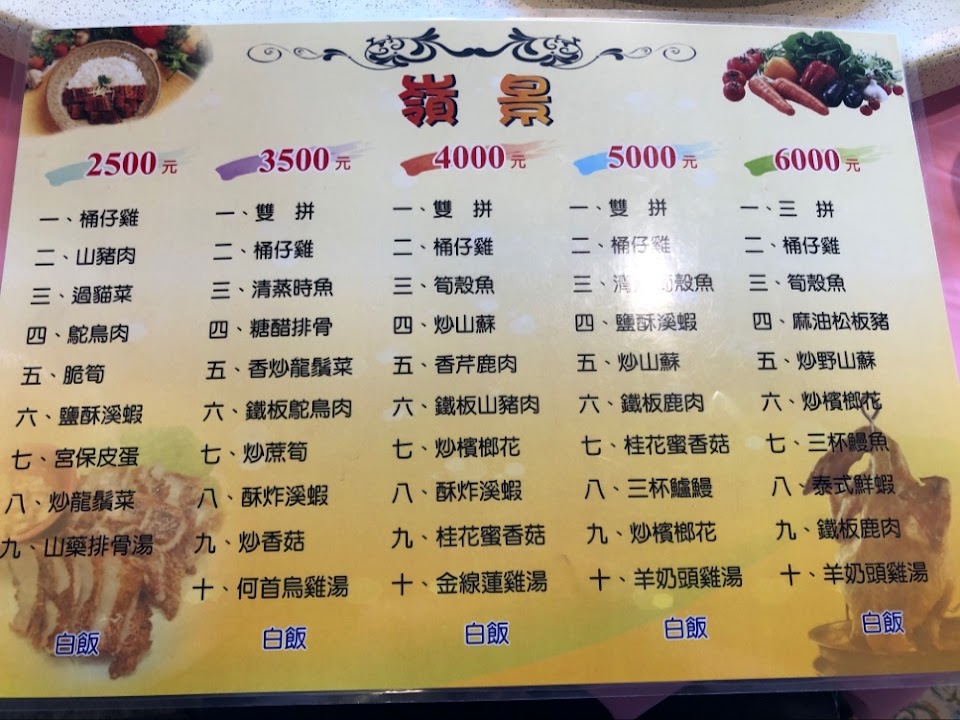 嶺 景
2500元
一、桶仔雞
二、山豬肉
三、過貓菜
四、鴕鳥肉
五、脆筍
六、鹽酥溪蝦
七、宮保皮蛋
八、炒龍鬚菜
九、山藥排骨湯
白飯
3500元
一、雙 拼
二、桶仔雞
三、清蒸時魚
四、糖醋排骨
五、香炒龍鬚菜
六、鐵板鴕鳥肉
七、炒蔗筍
八、酥炸溪蝦
九、炒香菇
十、何首烏雞湯
白飯
4000元
一、雙 拼
二、桶仔雞
三、筍殼魚
四、炒山蘇
五、香芹鹿肉
六、鐵板山豬肉
七、炒檳榔花
八、酥炸溪蝦
九、桂花蜜香菇
十、金線蓮雞湯
白飯
5000元
一、雙 拼
二、桶仔雞
三、殼魚
四、鹽酥溪蝦
五、炒山蘇
六、鐵板鹿肉
七、桂花蜜香菇
八、三杯鱸鰻
九、炒檳榔花
十、羊奶頭雞湯
白飯
6000元
一、三 拼
二、桶仔雞
三、筍殼魚
四、麻油松板豬
五、炒野山蘇
六、炒檳榔花
七、三杯鰻魚
八、泰式鮮蝦
九、鐵板鹿肉
十、羊奶頭雞湯
白飯